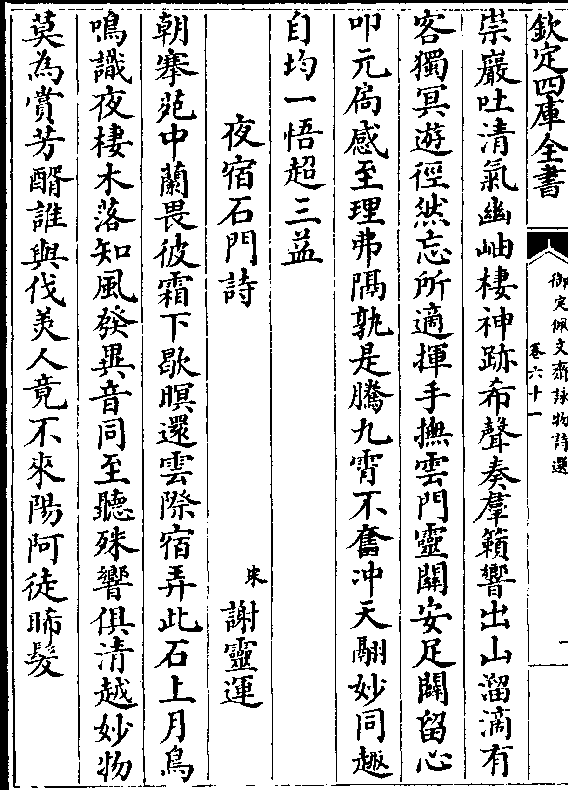 欽定四庫全書
御定佩文齋詠物詩選
卷六十一
崇巖吐清氣幽岫棲神跡希聲奏羣籟響出山溜滴有
客獨冥遊徑然忘所適揮手撫雲門靈關安足闢留心
叩元扃感至理弗隔孰是騰九霄不奮冲天翮妙同趣
自均一悟超三益
夜宿石門詩
宋 謝靈運
朝搴苑中蘭畏彼霜下歇暝還雲際宿弄此石上月鳥
鳴識夜棲木落知風發異音同至聽殊響俱清越妙物
莫為賞芳醑誰與伐美人竟不來陽阿徒晞髮